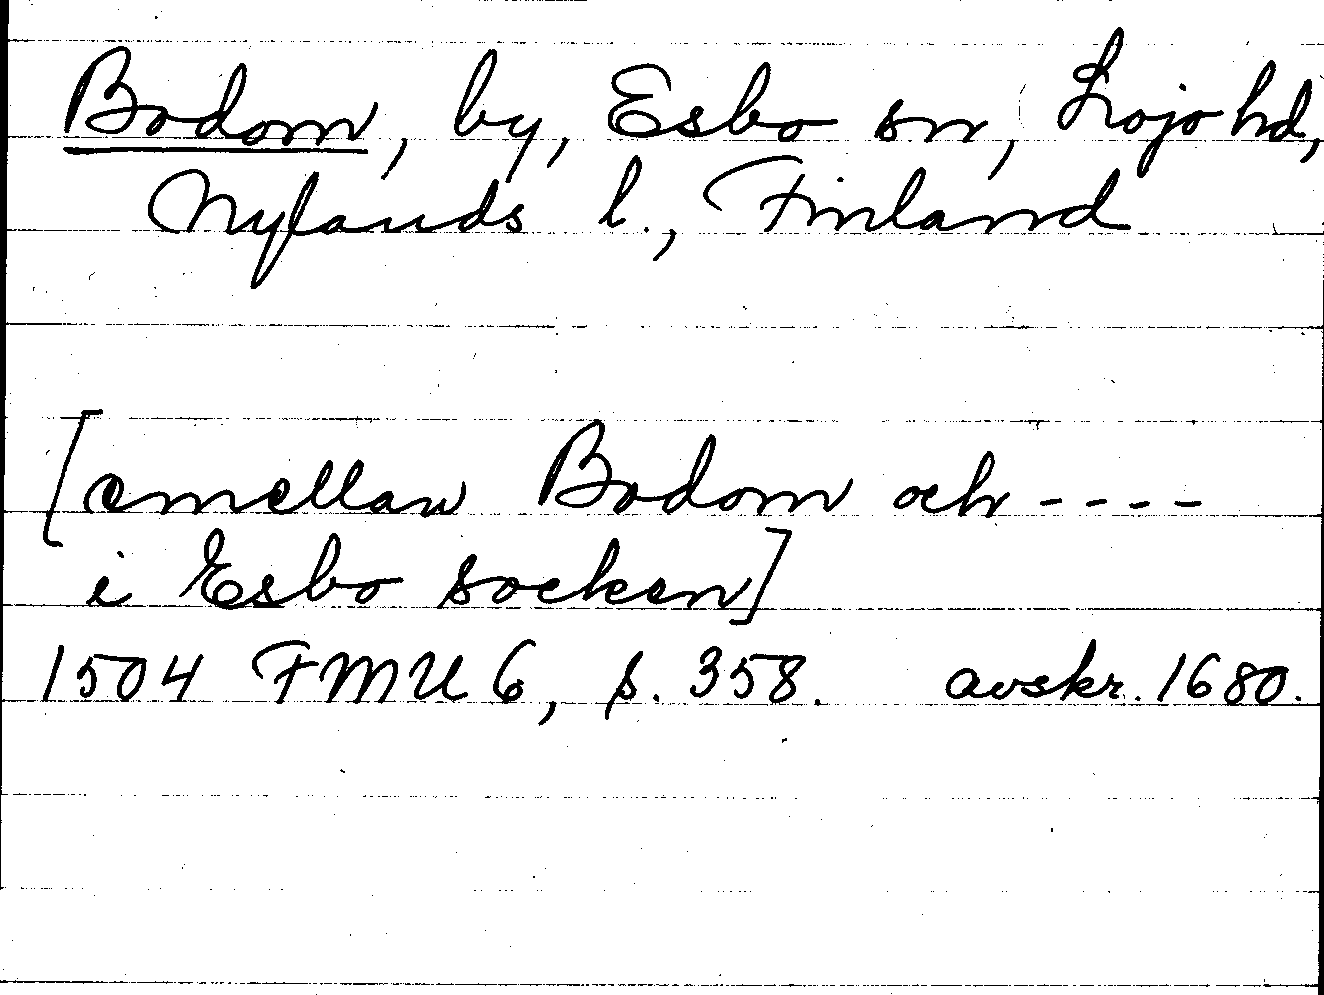 Bodom, by, Esbo sn, Lojo hd,
Nylands l., Finland
[emellan Bodom och ----
i Esbo socken]
1504 FMU 6, s. 358. avskr. 1680.